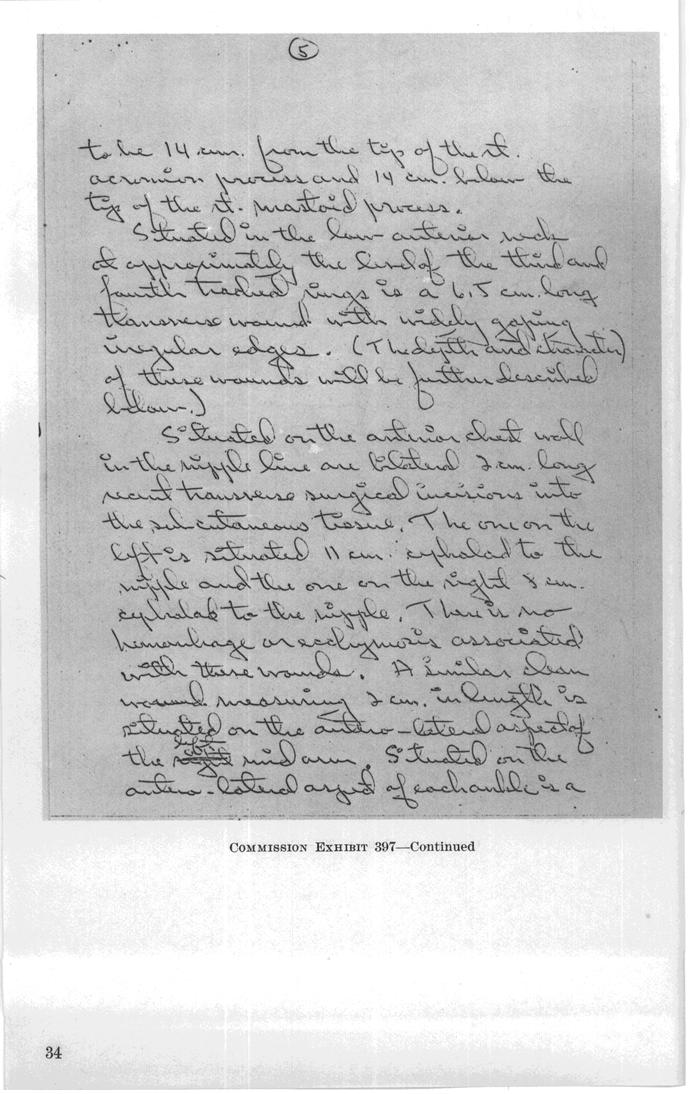 5
to be 14 cm. from the tip of the rt.
acromion process and 14 cm. below the
tip of the rt. mastoid process.
Situated in the low anterior neck
at approximately the level of the third and
fourth tracheal rings is a 6.5 cm. long
transverse wound with widely gaping
irregular edges. (The depth and character)
of these wounds will be further described
below.)
Situated on the anterior chest wall
in the nipple line are bilateral 2 cm. long
recent transverse surgical incisions into
the subcutaneous tissue. The one on the
left is situated 11 cm. cephalad to the
nipple and the one on the right 8 cm.
cephalad to the nipple. There is no
hemorrhage or ecchymosis associated
with these wounds. A similar clean
wound measuring 2 cm. in length is
situated on the antero-lateral aspect of
left
the right mid arm. Situated on the
antero-lateral aspect of each ankle is a
COMMISSION EXHIBIT 397—Continued
34